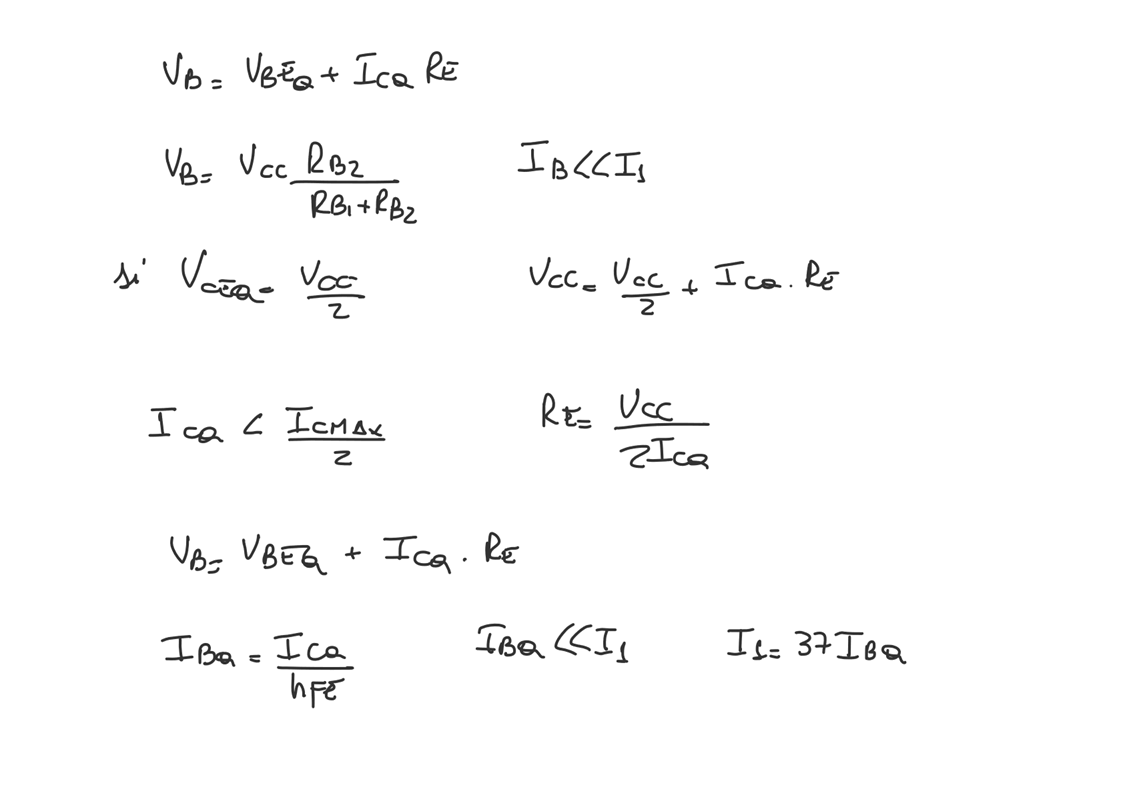 V_B = V_BEQ + I_CQ R_E
V_B = V_CC R_B2 / (R_B1 + R_B2)    I_B << I_1
si V_CEQ = V_CC / 2    V_CC = V_CC / 2 + I_CQ . R_E
I_CQ < I_CMAX / 2    R_E = V_CC / 2I_CQ
V_B = V_BEQ + I_CQ . R_E
I_BQ = I_CQ / h_FE    I_BQ << I_1    I_1 = 37 I_BQ